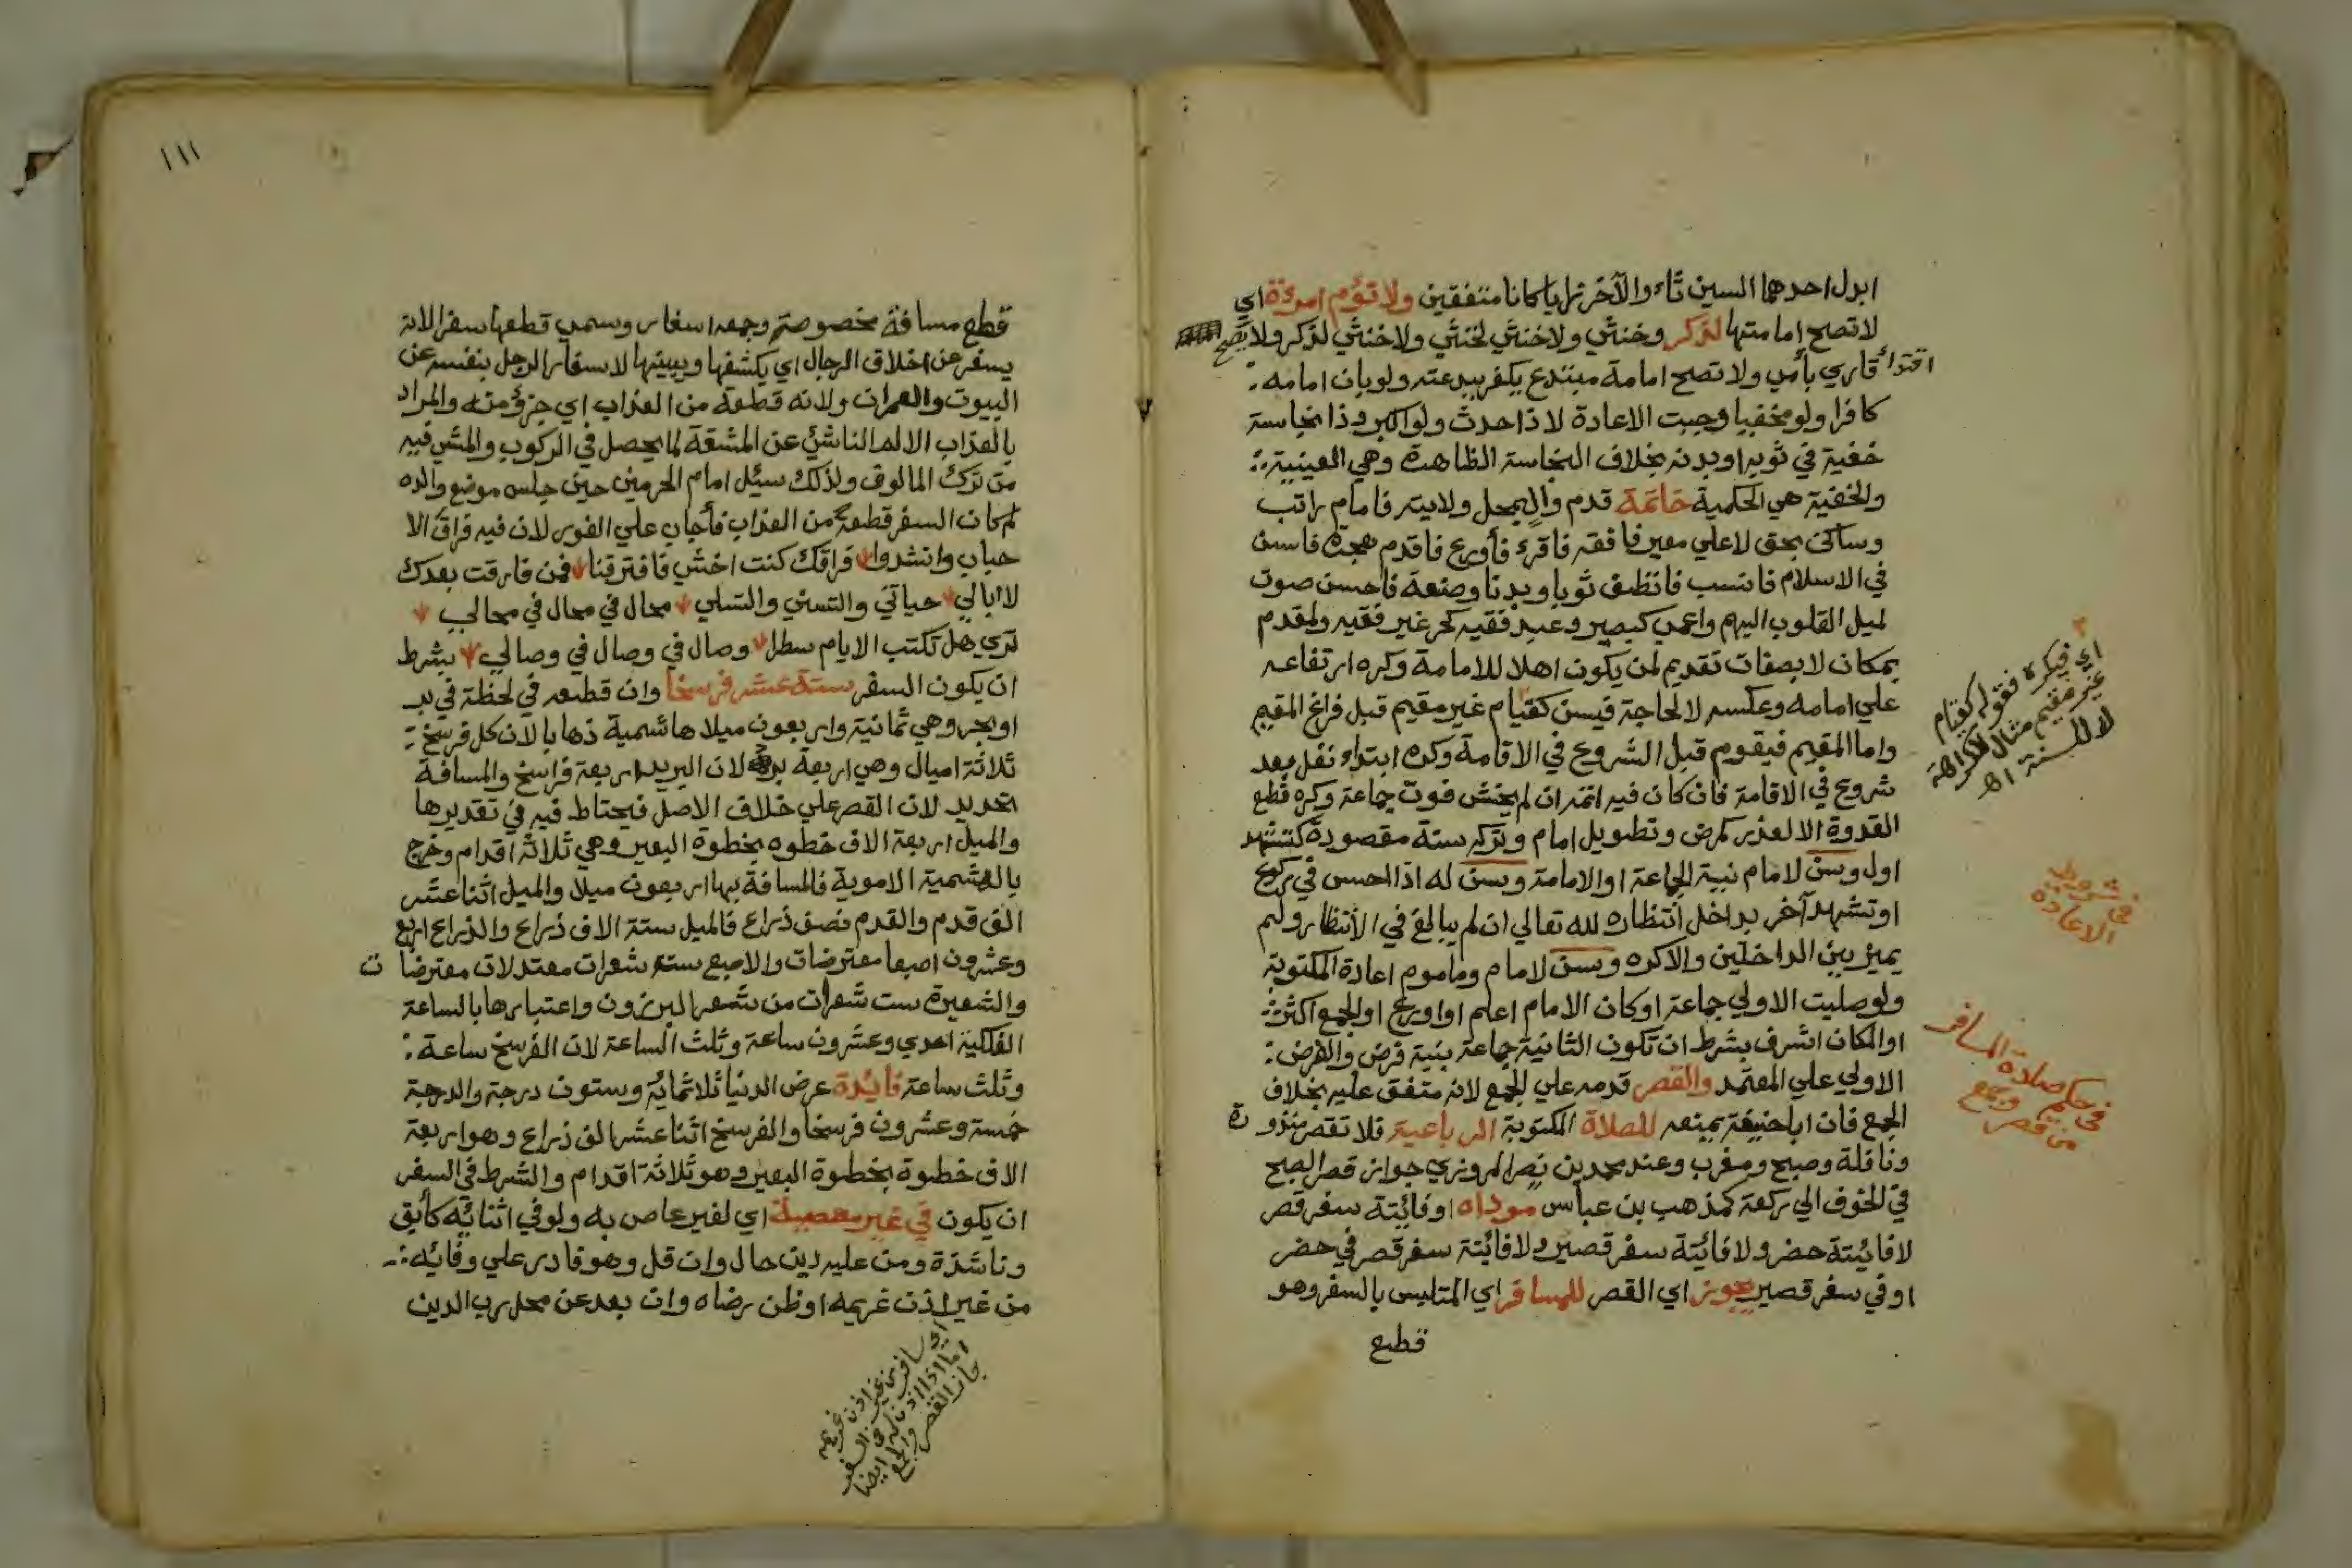 ابدل احدهما السين تاء والآخر زايا كانا متفقين ولا تؤم امرءة اي
لا تصح امامتها لذكر وخنثي ولا خنثي لخنثي ولا خنثي لذكر ولا يصح
اقتدائ قاري بأمي ولا تصح امامة مبتدع يكفر ببدعته ولو بان امامه
كافرا ولو مخفيا وجبت الاعادة لا ذا حدث ولو اكبر وذا نجاسة
خفية في ثوبه او بدنه بخلاف النجاسة الظاهرة وهي العينية
والخفية هي الحكمية خاتمة قدم وال بمحل ولايته فامام راتب
وساكن بحق لا علي معير فافقه فاقرء فأورع فاقدم هجرة فاسن
في الاسلام فانسب فانظف ثوبا وبدنا وصنعة فاحسن صوت
لميل القلوب اليهم واعمي كبصير وعبد فقيه كحر غير فقيه ولمقدم
بمكان لا بصفات تقديم لمن يكون اهلا للامامة وكره ارتفاعه
علي امامه وعكسه لا لحاجة فيسن كقيام غير مقيم قبل فراغ المقيم
واما المقيم فيقوم قبل الشروع في الاقامة وكره ابتداء نفل بعد
شروع في الاقامة فان كان فيه اتمه ان لم يخش فوت جماعة وكره قطع
القدوة الا لعذر كمرض وتطويل امام وتركه سنة مقصودة كتشهد
اول وسن لامام نية الجماعة او الامامة وسن له اذا احس في ركوع
او تشهد آخر بداخل انتظاره لله تعالي ان لم يبالغ في الأنتظار ولم
يميز بين الداخلين والا كره وسن لامام وماموم اعادة المكتوبة
ولو صليت الاولي جماعة او كان الامام اعلم او اورع او الجمع اكثر
او المكان اشرف بشرط ان تكون الثانية جماعة بنية فرض والفرض
الاولي علي المعتمد والقصر قدمه علي الجمع لانه متفق عليه بخلاف
الجمع فان ابا حنيفة يمنعه للصلاة المكتوبة الرباعية فلا تقصر منذورة
ونافلة وصبح ومغرب وعند محمد بن نصر المروزي جواز قصر الصبح
في الخوف الي ركعة كمذهب بن عباس موداه او فائيتة سفر قصر
لا فائيتة حضر ولا فائيتة سفر قصير ولا فائيتة سفر قصر في حضر
او في سفر قصير يجوز اي القصر للمسافر اي المتلبس بالسفر وهو
قطع
اي فيكره فقوله كقيام
غير مقيم مثال للكراهة
لا للسنة اه
في شروط
الاعادة
في حكم صلاة المسافر
من قصر وجمع
١١١
قطع مسافة مخصوصة وجمعه اسفار وسمي قطعها سفرا لانه
يسفر عن اخلاق الرجال اي يكشفها ويبينها لاسفار الرجل بنفسه عن
البيوت والعمران ولانه قطعة من العذاب اي جزؤ منه والمراد
بالعذاب الالم الناشئ عن المشقة لما يحصل في الركوب والمشي فيه
من ترك المالوف ولذلك سيئل امام الحرمين حين جلس موضع والده
لم كان السفر قطعة من العذاب فأجاب علي الفور لان فيه فراق الا
حباب وانشدوا فراقك كنت اخشي فافترقنا فمن فارقت بعدك
لا ابالي حياتي والتسني والتسلي محال في محال في محالي
تري هل تكتب الايام سطرا وصال في وصال في وصالي بشرط
ان يكون السفر ستة عشر فرسخا وان قطعه في لحظة في بر
او بحر وهي ثمانية واربعون ميلا هاشمية ذهابا لان كل فرسخ
ثلاثة اميال وهي اربعة برد لان البريد اربعة فراسخ والمسافة
تحديد لان القصر علي خلاف الاصل فيحتاط فيه في تقديرها
والميل اربعة الاف خطوه بخطوة البعير وهي ثلاثة اقدام وخرج
بالهشمية الاموية فالمسافة بها اربعون ميلا والميل اثنا عشر
الف قدم والقدم نصف ذراع فالميل ستة الاف ذراع والذراع اربع
وعشرون اصبعا معترضات والاصبع ست شعرات معتدلات معترضات
والشعيرة ست شعرات من شعر البرزون واعتبارها بالساعة
الفلكية احدي وعشرون ساعة وثلث الساعة لان الفرسخ ساعة
وثلث ساعة فائدة عرض الدنيا ثلاثمائة وستون درجة والدرجة
خمسة وعشرون فرسخا والفرسخ اثنا عشر الف ذراع وهو اربعة
الاف خطوة بخطوة البعير وهو ثلاثة اقدام والشرط في السفر
ان يكون في غير معصية اي لغير عاص به ولو في اثنائه كأبق
وناشذة ومن عليه دين حال وان قل وهو قادر علي وفائه
من غير اذن غريمه او ظن رضاه وان بعد عن محل رب الدين
اي سافر من غير اذن غريمه
اما اذا اذن له في السفر
جاز القصر والجمع ايضا